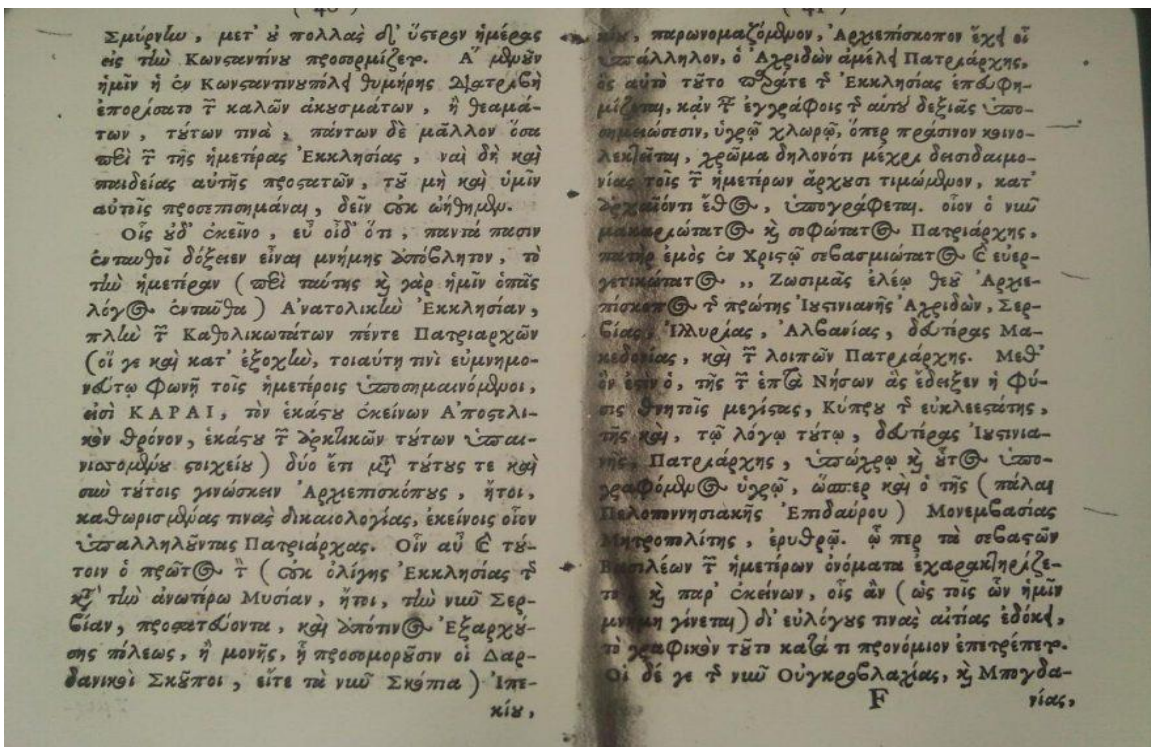 ( 40 )
Σμύρνην, μετ' οὐ πολλὰς δ' ὕστερον ἡμέρας
εἰς τὴν Κωνσταντίνου προσορμίζεται. Ἃ μὲν οὖν
ἡμῖν ἡ ἐν Κωνσταντινουπόλει θυμήρης διατριβὴ
ἐπορίσατο τῶν καλῶν ἀκουσμάτων, ἢ θεαμά-
των, τούτων τινὰ, πάντων δὲ μᾶλλον ὅσα
περὶ τῶν τῆς ἡμετέρας Ἐκκλησίας, ναὶ δὴ καὶ
παιδείας αὐτῆς προστατῶν, τοῦ μὴ καὶ ὑμῖν
αὐτοῖς προσεπισημᾶναι, δεῖν οὐκ ᾠήθημεν.
Οἷς οὐδ' ἐκεῖνο, εὖ οἶδ' ὅτι, παντά πασιν
ἐνταυθοῖ δόξειεν εἶναι μνήμης ἀπόβλητον, τὸ
τὴν ἡμετέραν (περὶ ταύτης καὶ γὰρ ἡμῖν ὁπᾶς
λόγος ἐνταῦθα) Ἀνατολικὴν Ἐκκλησίαν,
πλὴν τῶν Καθολικωτάτων πέντε Πατριαρχῶν
(οἵ γε καὶ κατ' ἐξοχὴν, τοιαύτῃ τινὶ εὐμνημο-
νεύτῳ φωνῇ τοῖς ἡμετέροις ὑποσημαινόμενοι,
εἰσὶ ΚΑΡΑΙ, τὸν ἑκάστου ἐκείνων Ἀποστολι-
κὸν θρόνον, ἑκάστου τῶν ἀρκτικῶν τούτων ὑπαι-
νισσομένου στοιχείου) δύο ἔτι μετὰ τούτους τε καὶ
σὺν τούτοις γινώσκειν Ἀρχιεπισκόπους, ἤτοι,
καθωρισμένας τινας δικαιολογίας, ἐκείνοις οἷον
ὑπαλληλοῦντας Πατριάρχας. Οἷν αὖ καὶ τού-
τοιν ὁ πρῶτος τῶν (οὐκ ὀλίγης Ἐκκλησίας τῆς
κατὰ τὴν ἀνωτέρω Μυσίαν, ἤτοι, τὴν νῦν Σερ-
βίαν, προστατεύοντα, καὶ ἀπότινος Ἐξαρχού-
σης πόλεως, ἢ μονῆς, ᾗ προσομοροῦσιν οἱ Δαρ-
δανικοὶ Σκοῦποι, εἴτε τὰ νῦν Σκόπια) Ἰπε-
κίου,
( 41 )
κίου, παρωνομαζόμενον, Ἀρχιεπίσκοπον ἔχει οἱ
ὑπάλληλον, ὁ Ἀχριδῶν ἀμέλει Πατριάρχης,
ὃς αὐτὸ τοῦτο πέρατε τῆς Ἐκκλησίας ἐπευφη-
μίζεται, κἀν τῶν ἐγγράφοις τῆς αὐτοῦ δεξιᾶς ὑπο-
σημειώσεσιν, ὑγρῷ χλωρῷ, ὅπερ πράσινον κοινο-
λεκτεῖται, χρῶμα δηλονότι μέχρι δεισιδαιμο-
νίας τοῖς τῶν ἡμετέρων ἄρχουσι τιμώμενον, κατ'
ἀρχαῖόντι ἔθος, ὑπογράφεται. οἷον ὁ νῦν
μακαριώτατος καὶ σοφώτατος Πατριάρχης,
πατὴρ ἐμὸς ἐν Χριστῷ σεβασμιώτατος καὶ εὐερ-
γετικώτατος ,, Ζωσιμᾶς ἐλέῳ θεοῦ Ἀρχιε-
πίσκοπος τῆς πρώτης Ἰουστινιανῆς Ἀχριδῶν, Σερ-
βίας, Ἰλλυρίας, Ἀλβανίας, δευτέρας Μα-
κεδονίας, καὶ τῶν λοιπῶν Πατριάρχης. Μεθ'
ὅν ἐστιν ὁ, τῆς τῶν ἑπτὰ Νήσων ἃς ἔδειξεν ἡ φύ-
σις θνητοῖς μεγίστας, Κύπρου τῆς εὐκλεεστάτης,
τῆς καὶ, τῷ λόγῳ τούτῳ, δευτέρας Ἰουστινια-
νῆς, Πατριάρχης, ὑπώχρῳ καὶ οὗτος ὑπο-
γραφόμενος ὑγρῷ, ὥσπερ καὶ ὁ τῆς (πάλαι
Πελοποννησιακῆς Ἐπιδαύρου) Μονεμβασίας
Μητροπολίτης, ἐρυθρῷ. ᾧ περ τὰ σεβαστῶν
Βασιλέων τῶν ἡμετέρων ὀνόματα ἐχαρακτηρίζε-
το καὶ παρ' ἐκείνων, οἷς ἂν (ὡς τοῖς ὧν ἡμῖν
μνήμη γίνεται) δι' εὐλόγους τινὰς αἰτίας ἐδόκει,
τὸ γραφικὸν τοῦτο κατά τι προνόμιον ἐπετρέπετο.
Οἱ δέ γε τῆς νῦν Οὐγκροβλαχίας, καὶ Μπογδα-
F νίας,